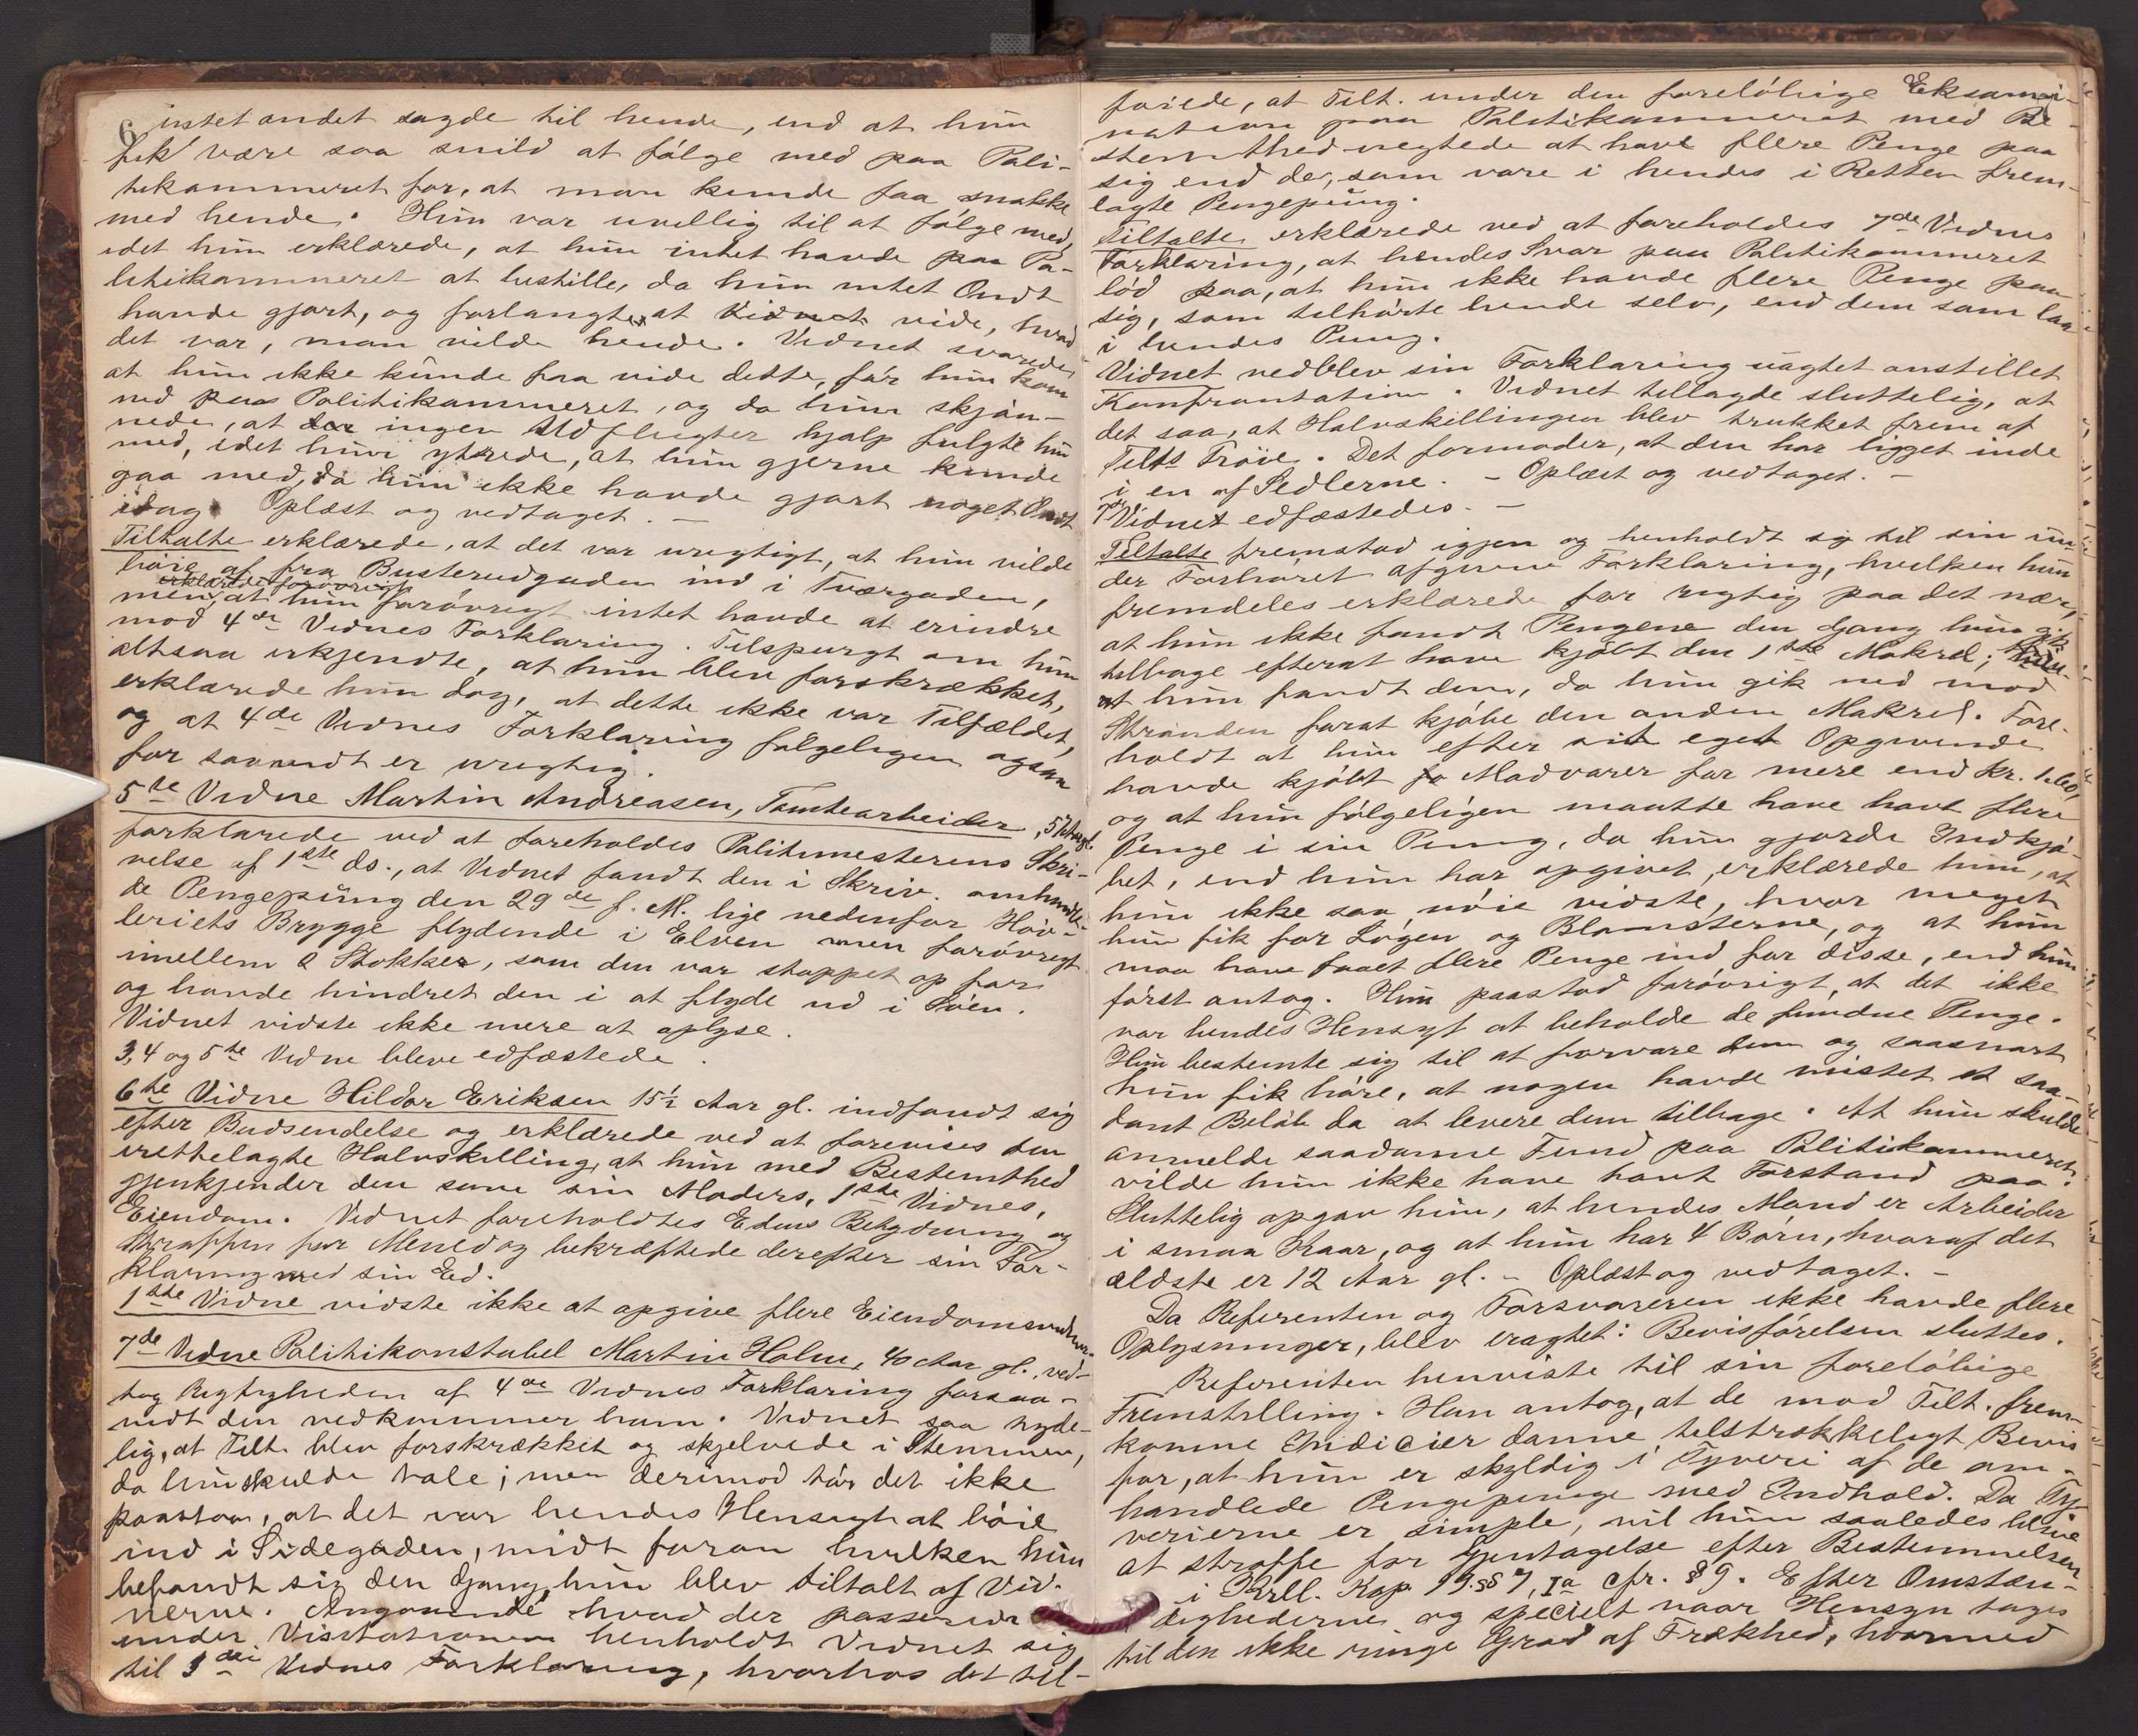 6
intet andet sagde til hende, end at hun
fik være saa snild at følge med paa Poli-
tikammeret for, at man kunde faa snakke
med hende. Hun var uvillig til at følge med,
idet hun erklærede, at hun intet havde paa Po-
litikammeret at bestille, da hun intet Ondt
havde gjort, og forlangte at Vidnet vide, hvad
det var, man vilde hende. Vidnet svarede,
at hun ikke kunde faa vide dette, før hun kom
ned paa Politikammeret, og da hun skjøn-
nede, at der ingen Udflugter hjalp fulgte hun
med, idet hun ytrede, at hun gjerne kunde
gaa med, da hun ikke havde gjort noget Ondt
idag. Oplæst og vedtaget. —
Tiltalte erklærede, at det var urigtigt, at hun vilde
bøie af fra Busterudgaden ind i Tværgaden,
erklærede forøvrigt
men, at hun forøvrigt intet havde at erindre
mod 4de Vidnes Forklaring. Tilspurgt om hun
altsaa erkjendte, at hun blev forskrækket,
erklærede hun dog, at dette ikke var Tilfældet,
og at 4de Vidnes Forklaring følgeligen ogsaa
for saavidt er urigtig.
5te Vidne Martin Andreasen, Tomtearbeider,
forklarede ved at foreholdes Politimesterens Skri-
velse af 1ste ds., at Vidnet fandt den i Skriv. omhandle-
de Pengepung den 29de f. M. lige nedenfor Høv-
leriets Brygge flydende i Elven men forøvrigt
imellem 2 Stokker, som den var stoppet op for
og havde hindret den i at flyde ud i Søen.
Vidnet vidste ikke mere at oplyse.
3, 4 og 5te Vidne bleve edfæstede.
6te Vidne Hildor Eriksen 15½ Aar gl. indfandt sig
efter Budsendelse og erklærede ved at forevises den
irettelagte Halvskilling, at hun med Bestemthed
gjenkjender den some sin Moders, 1ste Vidnes,
Eiendom. Vidnet foreholdtes Edens Betydning og
Straffen for Mened og bekræftede derefter sin For-
klaring med sin Ed.
1ste Vidne vidste ikke at opgive flere Eiendomsvidner.
7de Vidne Politikonstabel Martin Holm, 40 Aar gl., ved-
tog Rigtigheden af 4de Vidnes Forklaring forsaa-
vidt den vedkommer ham. Vidnet saa tyde-
lig, at Tilt. blev forskrækket og skjelvede i Stemmen,
da hun skulde tale; men derimod tør det ikke
paastaa, at det var hendes Hensigt at bøie
ind i Sidegaden, midt foran hvilken hun
befandt sig den Gang hun blev tiltalt af Vid-
nerne. Angaaende hvad der passerede
under Visitationen henholdt Vidnet sig
til 3die Vidnes Forklaring, hvorhos det til-
føiede, at Tilt. under den foreløbige Eksami-
nation paa Politikammeret med Be-
stemthed negtede at have flere Penge paa
sig end de, som vare i hendes i Retten frem-
lagte Pengepung.
Tiltalte erklærede ved at foreholdes 7de Vidnes
Forklaring, at hendes Svar paa Politikammeret
lød paa, at hun ikke havde flere Penge paa
sig, som tilhørte hende selv, end dem som laa
i hendes Pung.
Vidnet vedblev sin Forklaring uagtet anstillet
Konfrontation. Vidnet tillagde sluttelig, at
det saa, at Halvskillingen blev trukket frem af
Tilts Trøie. Det formoder, at den har ligget inde
i en af Sedlerne. – Oplæst og vedtaget. –
7de Vidnet edfæstedes. –
Tiltalte fremstod igjen og henholdt sig til sin un-
der Forhøret afgivne Forklaring, hvilken hun
fremdeles erklærede for rigtig paa det nær,
at hun ikke fandt Pengene den Gang hun gik
tilbage efterat have kjøbt den 1ste Makrel;
at hun fandt dem, da hun gik ned mod
Stranden forat kjøbe den anden Makrel. Fore-
holdt at hun efter sit eget Opgivende
havde kjøbt fo Madvarer for mere end Kr. 1.60,
og at hun følgeligen maatte have havt flere
Penge i sin Pung, da hun gjorde Indkjø-
bet, end hun har opgivet, erklærede hun, at
hun ikke saa nøie vidste, hvor meget
hun fik for Løgen og Blomsterne, og at hun
maa have faaet flere Penge ind for disse, end hun
først antog. Hun paastod forøvrigt, at det ikke
var hendes Hensigt at beholde de fundne Penge.
Hun bestemte sig til at forvare dem og saasnart
hun fik høre, at nogen havde mistet et saa-
dant Beløb da at levere dem tilbage. At hun skulde
anmelde saadanne Fund paa Politikammeret
vilde hun ikke have havt Forstand paa.
Sluttelig opgav hun, at hendes Mand er Arbeider
i smaa Kaar, og at hun har 4 Børn, hvoraf det
ældste er 12 Aar gl. – Oplæst og vedtaget. –
Da Referenten og Forsvareren ikke havde flere
Oplysninger, blev eragtet: Bevisførelsen sluttes.
Referenten henviste til sin foreløbige
Fremstilling. Han antog, at de mod Tilt. frem-
komne Indicier danne tilstrækkeligt Bevis
for, at hun er skyldig i Tyveri af de om-
handlede Pengepunge med Indhold. Da Ty-
verierne er simple, vil hun saaledes blive
at straffe for Gjentagelse efter Bestemmelsen
i Krll. Kap. 19. §§ 7, 1a cfr. § 9. Efter Omstæn-
dighederne og specielt naar Hensyn tages
til den ikke ringe Grad af Frækhed, hvormed